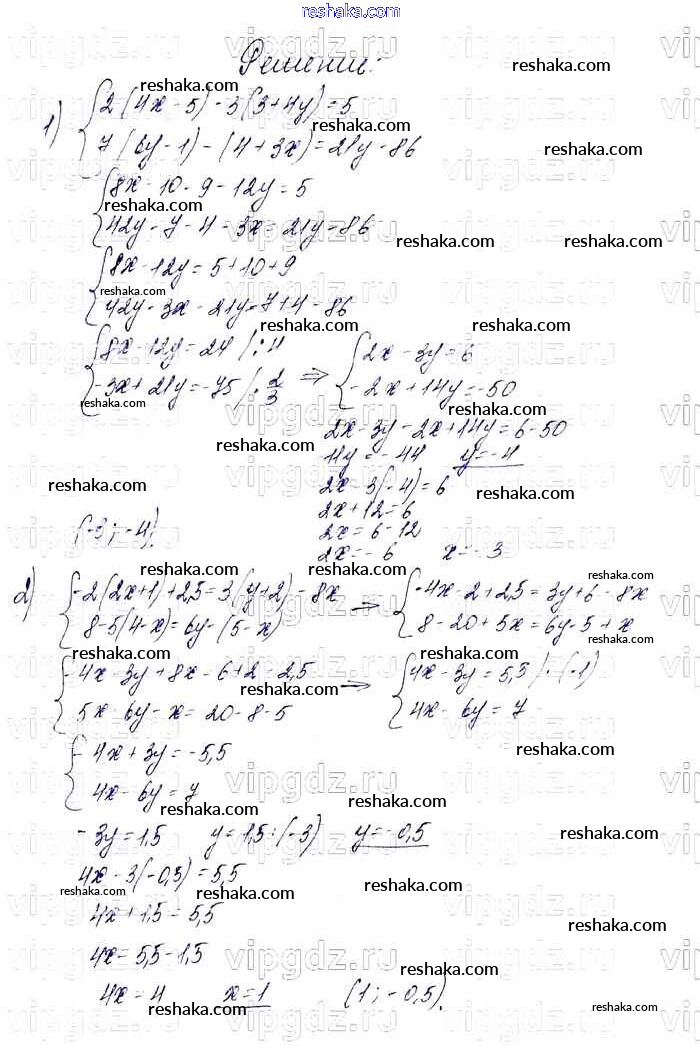 reshaka.com
Решение:
1) { 2(4x - 5) - 3(3 + 4y) = 5
7(6y - 1) - (4 + 3x) = 21y - 86
{ 8x - 10 - 9 - 12y = 5
42y - 7 - 4 - 3x = 21y - 86
{ 8x - 12y = 5 + 10 + 9
42y - 3x - 21y = 7 + 4 - 86
{ 8x - 12y = 24 / : 4
-3x + 21y = -75 / · 2/3
⇒ { 2x - 3y = 6
-2x + 14y = -50
2x - 3y - 2x + 14y = 6 - 50
11y = -44 y = -4
2x - 3(-4) = 6
2x + 12 = 6
2x = 6 - 12
2x = -6 x = -3
(-3; -4).
2) { -2(2x+1) + 2,5 = 3(y+2) - 8x
8 - 5(4 - x) = 6y - (5 - x)
→ { -4x - 2 + 2,5 = 3y + 6 - 8x
8 - 20 + 5x = 6y - 5 + x
{ -4x - 3y + 8x = 6 + 2 - 2,5
5x - 6y - x = 20 - 8 - 5
→ { 4x - 3y = 5,5 / · (-1)
4x - 6y = 7
{ -4x + 3y = -5,5
4x - 6y = 7
-3y = 1,5 y = 1,5 : (-3) y = -0,5
4x - 3(-0,5) = 5,5
4x + 1,5 = 5,5
4x = 5,5 - 1,5
4x = 4 x = 1 (1; -0,5).